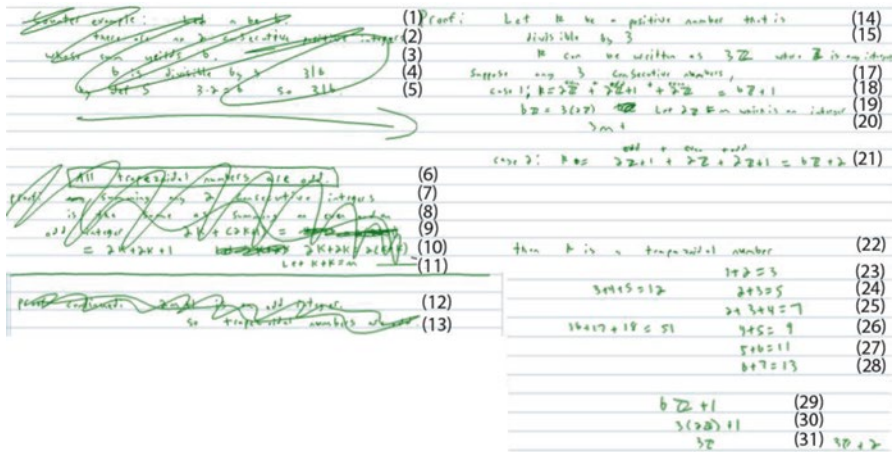 Counter example: Let n be 6. (1)
there are no 2 consecutive positive integers (2)
whose sum yeilds 6. (3)
6 is divisible by 3 3|6 (4)
by def 5 3·2=6 so 3|6 (5)
All trapezoidal numbers are odd. (6)
proof: summing any 2 consecutive integers (7)
is the same as summing an even and an (8)
odd integer 2k + (2k+1) = (9)
= 2k+2k+1 2k+2k= (10)
Let k+k=m (11)
proof confirmed. 2m+1 is an odd integer. (12)
so trapezoidal numbers are odd. (13)
Proof: Let k be a positive number that is (14)
divisible by 3 (15)
k can be written as 3ℤ where ℤ is any integer
Suppose any 3 consecutive numbers, (17)
case 1: k= 2ℤ + 2ℤ+1 + 2ℤ = 6ℤ+1 (18)
6ℤ = 3(2ℤ) Let 2ℤ = m which is an integer (19)
3m + (20)
odd + even + odd
case 2: k = 2ℤ+1 + 2ℤ + 2ℤ+1 = 6ℤ+2 (21)
then k is a trapezoidal number (22)
1+2=3 (23)
3+4+5=12 2+3=5 (24)
2+3+4=7 (25)
16+17+18=51 4+5=9 (26)
5+6=11 (27)
6+7=13 (28)
6ℤ+1 (29)
3(2ℤ)+1 (30)
3ℤ (31) 3ℤ+2